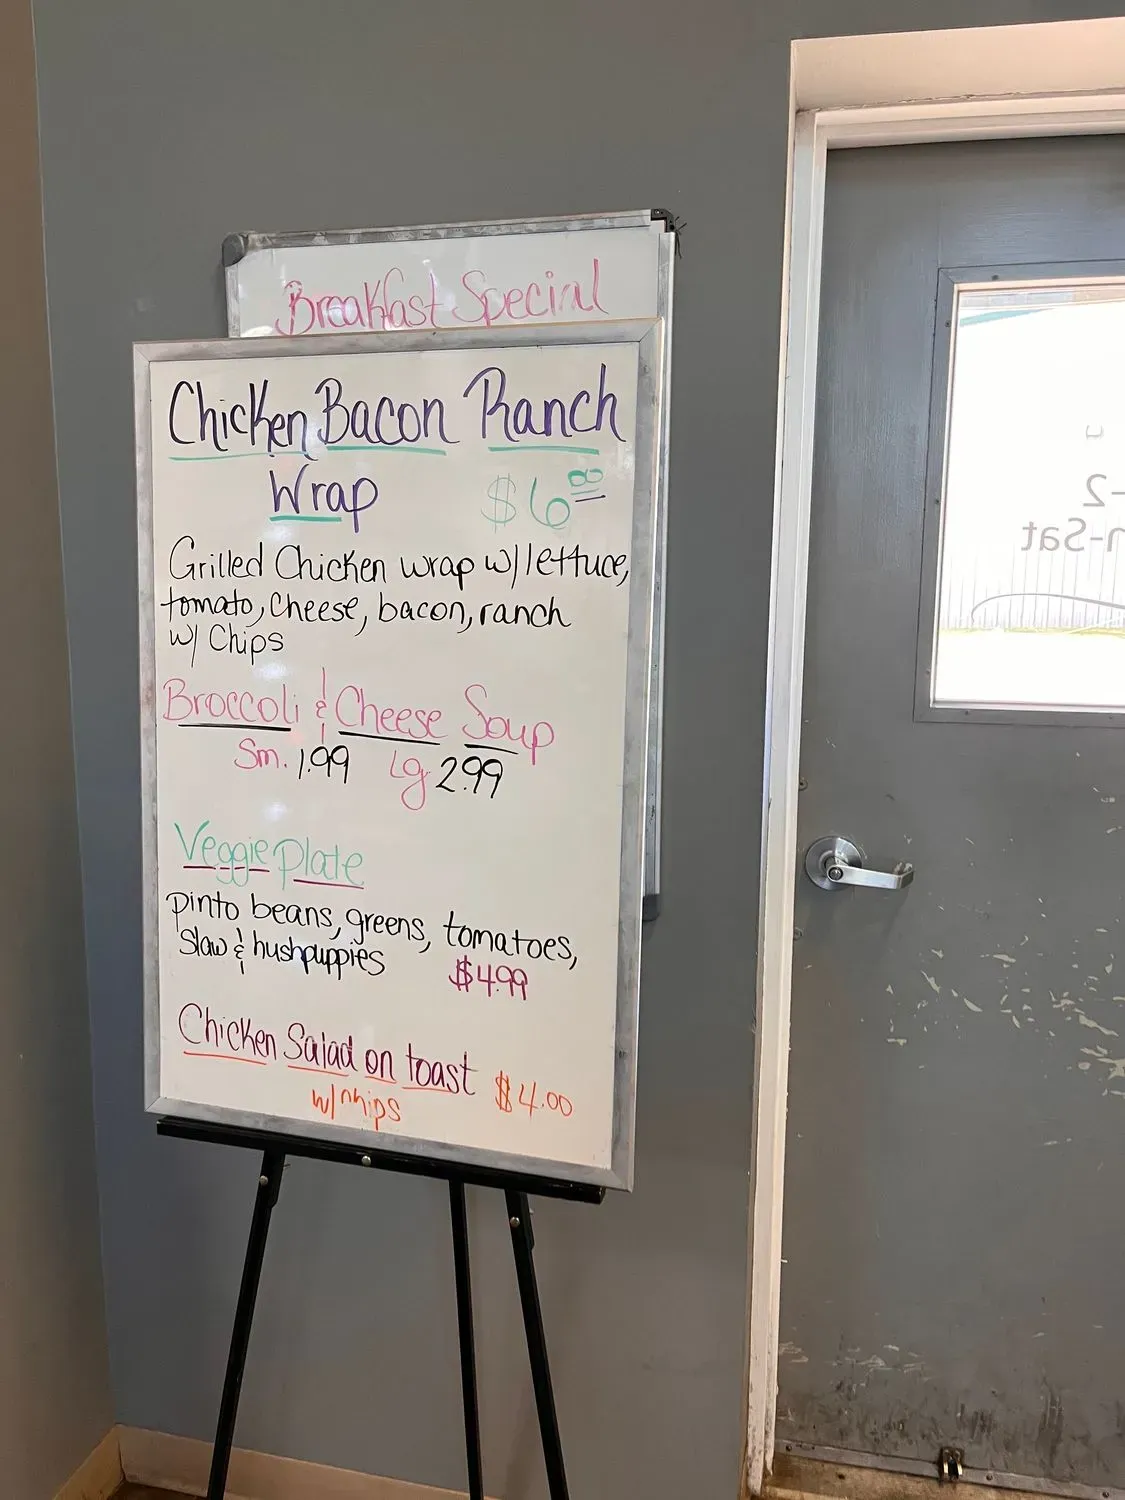 Breakfast Special
Chicken Bacon Ranch
Wrap $6.00
Grilled Chicken wrap w/ lettuce,
tomato, Cheese, bacon, ranch
w/ Chips
Broccoli & Cheese Soup
Sm. 1.99 Lg 2.99
Veggie Plate
pinto beans, greens, tomatoes,
Slaw & hushpuppies $4.99
Chicken Salad on toast $4.00
w/ chips
-2
n-Sat